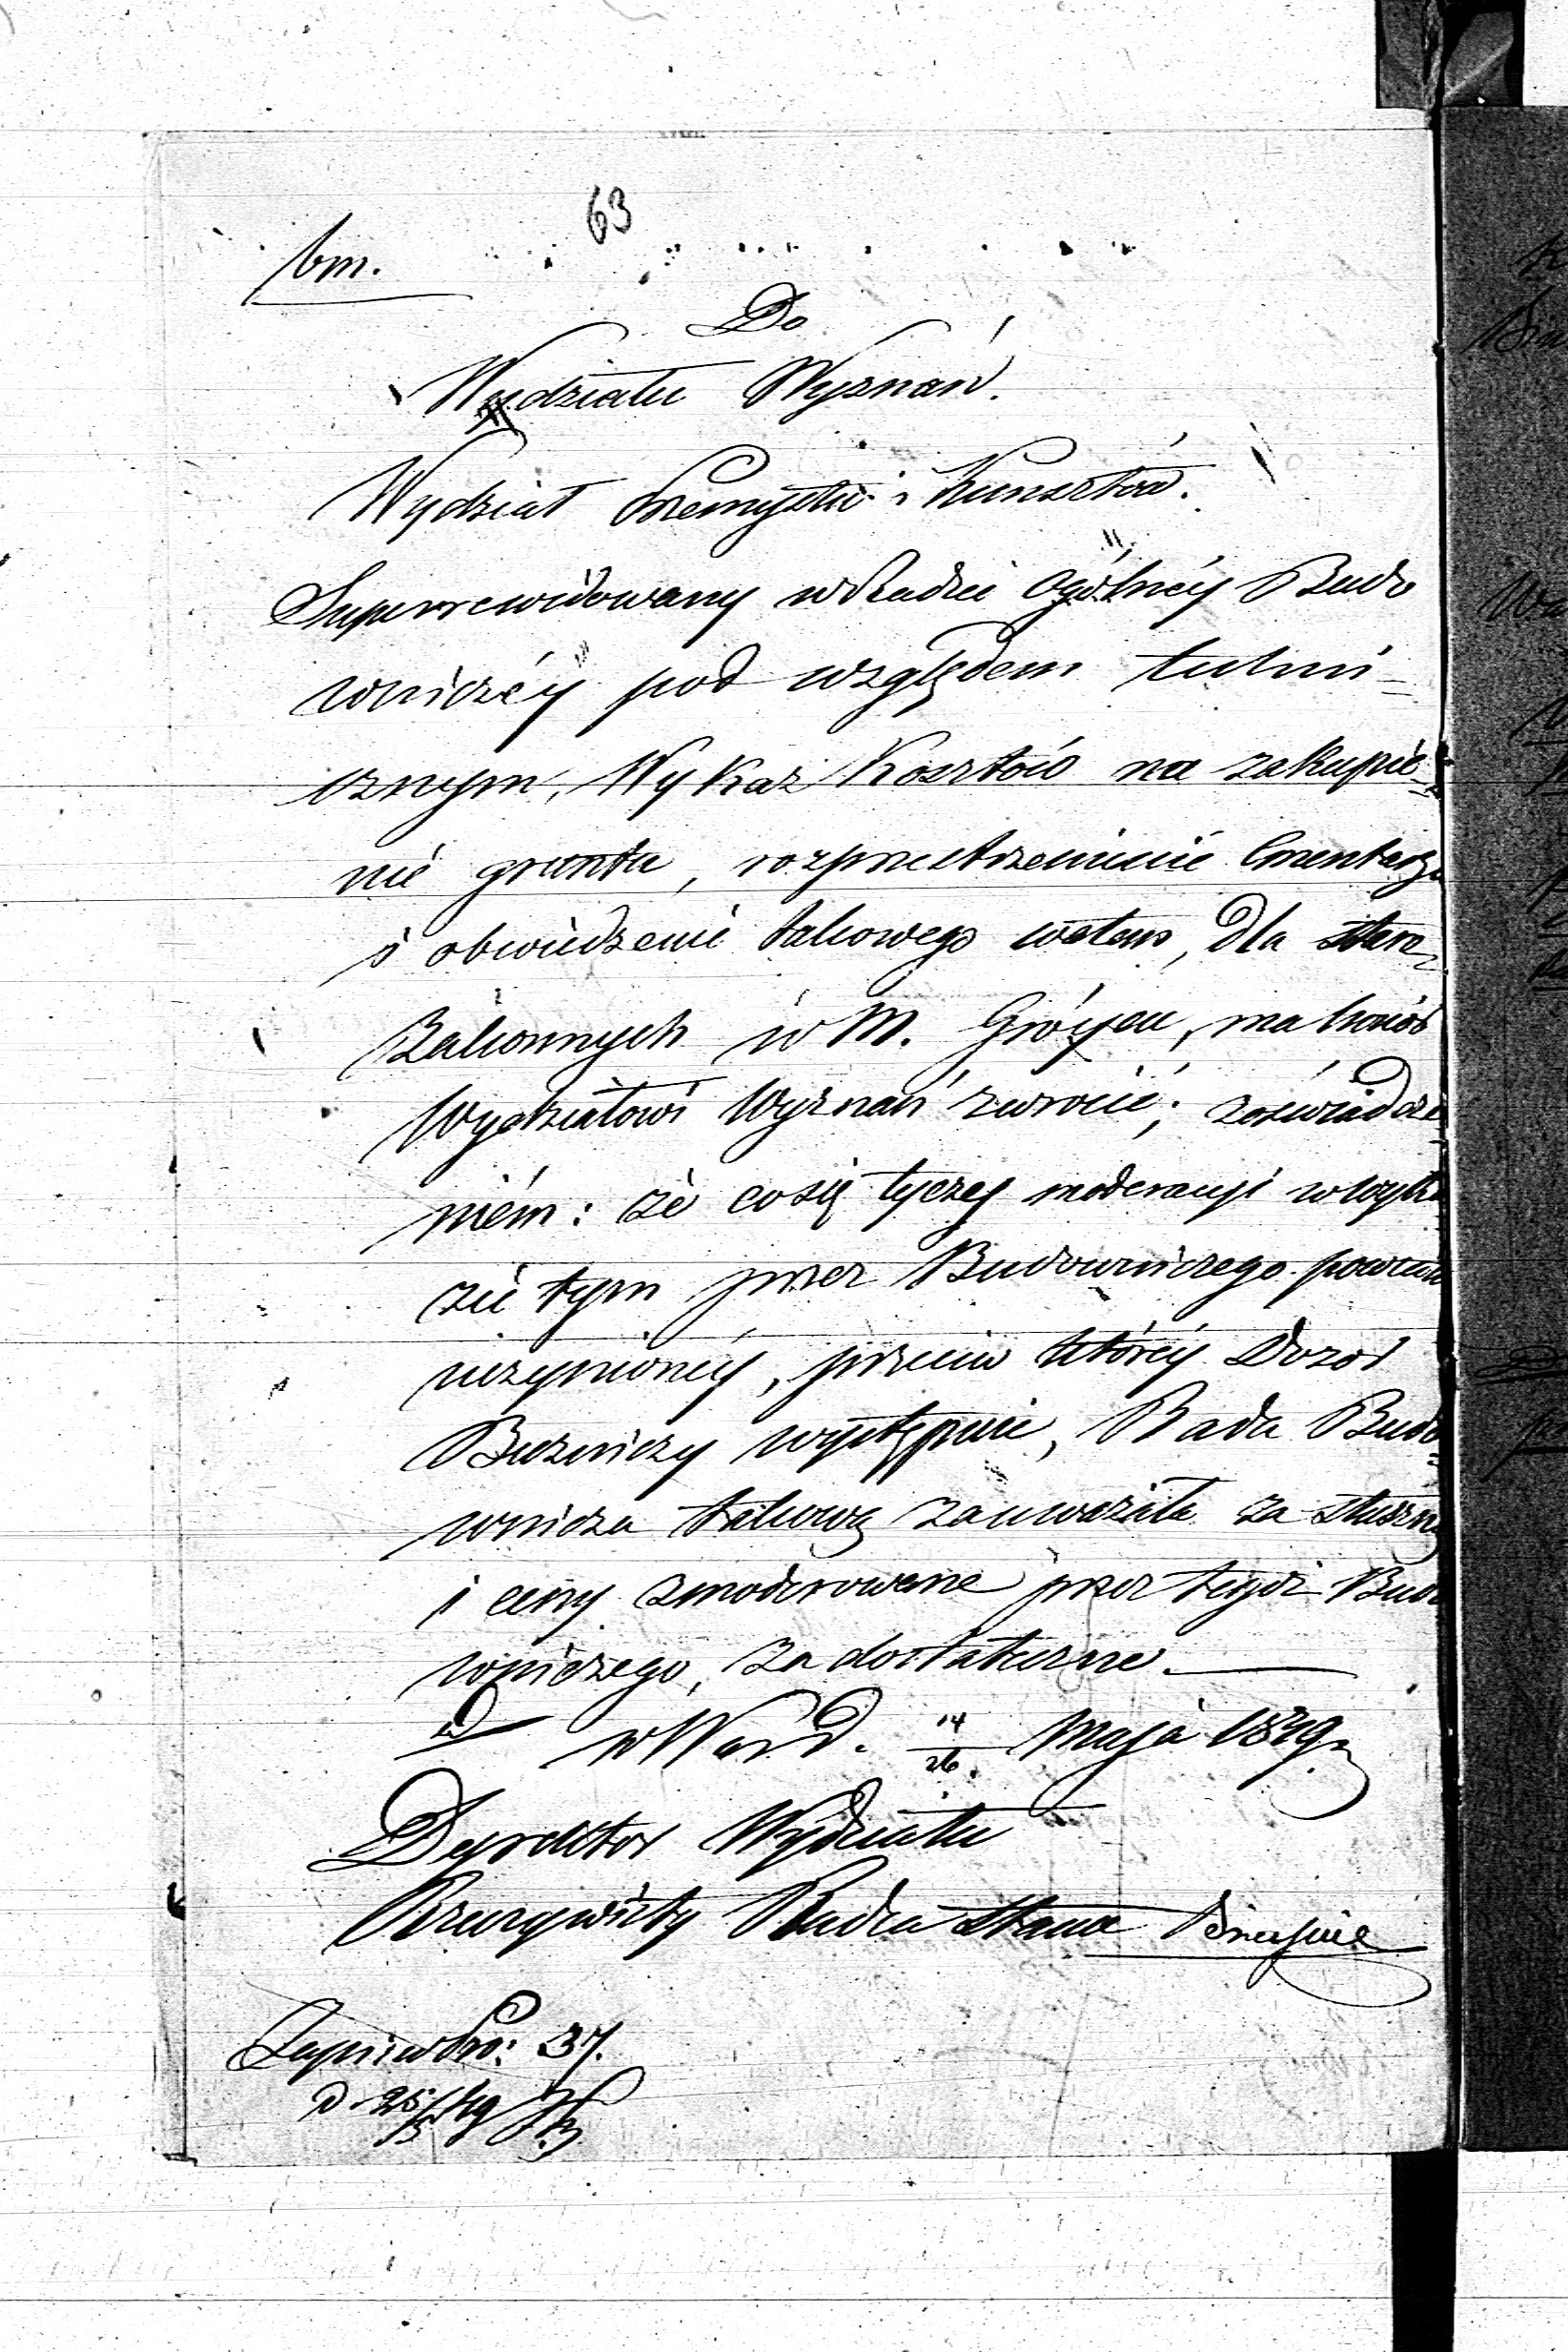 63
bm.
Do
Wydziału Wyznań.
Wydział Przemysłu i Kunsztów.
Superrewidowany w Radzie Ogólnéy Budo
wniczéy pod względem techni-
cznym, Wykaz Kosztów na zakupie-
nie gruntu, rozprzestrzenienie Cmentarza
i obwiedzenie takowego wałem, dla staro-
zakonnych w M. Gróycu, ma honor
Wydziałowi Wyznań zwrócić; zoświadcze
niém: że co się tyczy moderacyi w wyka
zie tym przez Budowniczego powiatu
uczynionéy, przeciw któréy Dozor
Bużniczy występuie, Rada Budo-
wnicza takową zauważała za słuszną
i ceny zmoderowane przez tegoż Budo
wniczego, za dostateczne.
w War d. 14/26. Maja 1849 r.
Dyrektor Wydziału
Rzeczywisty Radca Stanu
37.